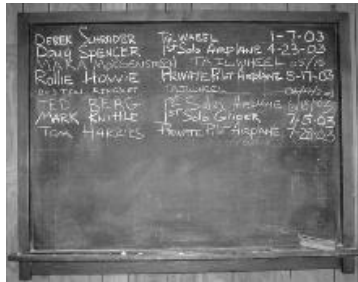 DEREK SCHNEIDER TAILWHEEL 1-7-03
Doug SPENCER 1st Solo AIRPLANE 4-23-03
MARK MORGENSTERN TAILWHEEL
Rollie Howie PRIVATE PILOT AIRPLANE 5-17-03
TAILWHEEL
TED BERG 1st Solo AIRPLANE
MARK KNITTLE 1st Solo GLIDER 7-5-03
Tom HARDIES PRIVATE PILOT AIRPLANE 7-28-03